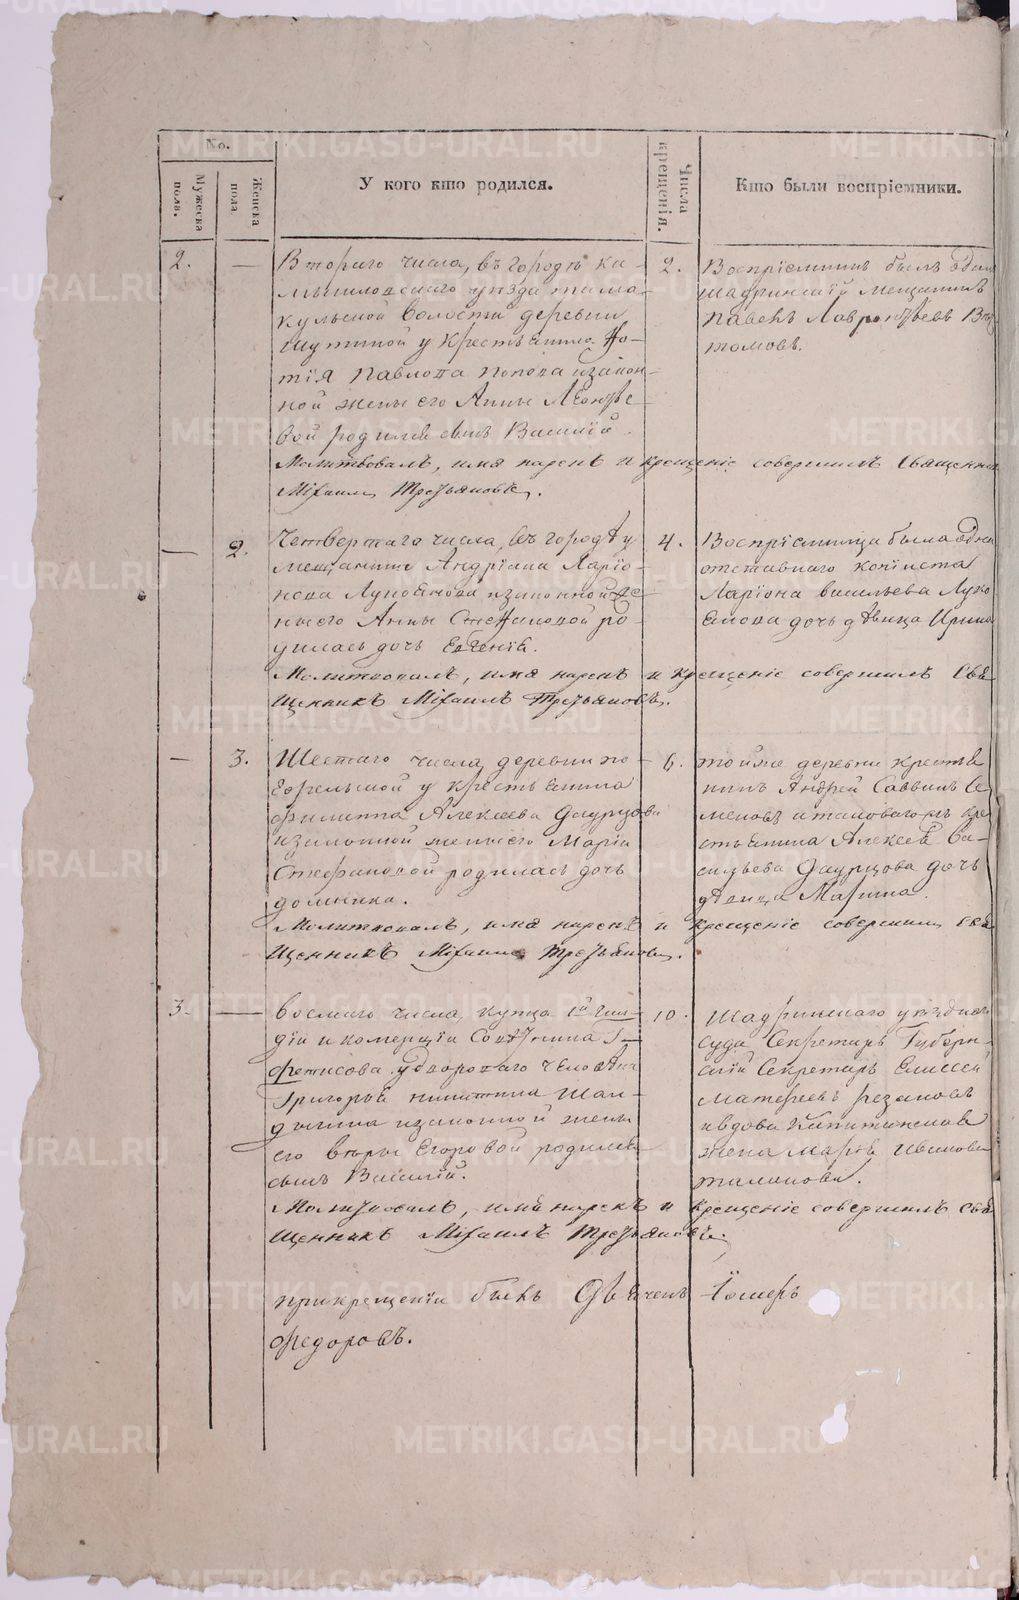 No.
Мужеска полв.
Женска пола
У кого кто родился.
Числа крещенія.
Кто были воспріемники.
2. — Втораго числа, въ городѣ ка-
мышловскаго уезда тама-
кульской волости деревни
Шутиной у крестьянина Фо-
тія Павлова Попова и закон-
ной жены его Анны Леонтье-
вой родился сынъ Василій.
Молитвовалъ, имя нарекъ и крещеніе совершилъ Священник
Михаилъ Третьяковъ.
2. Воспріемникъ былъ один
шадринскій мещанинъ
Павелъ Лаврентьевъ
— 2. Четвертаго числа, въ городѣ у
мещанина Андріана Ларіо-
нова Лукоянова и законной же-
ны его Анны Стефановой ро-
дилась дочь Евгенія.
Молитвовалъ, имя нарекъ и крещеніе совершилъ Свя-
щенникъ Михаилъ Третьяковъ.
4. Воспріемница была одна
отставнаго копіиста
Ларіона Васильева Луко-
янова дочь девица Ирина
— 3. Шестаго числа, деревни по-
у крестьянина
Филиппа Алексеева Даурцова
и законной жены его Маріи
Стефановой родилась дочь
Домника.
Молитвовалъ, имя нарекъ и крещеніе совершилъ свя-
щенникъ Михаилъ Третьяковъ.
6. тойже деревни крестья-
нинъ Андрей Саввинъ Се-
меновъ и таковагожъ кре-
стьянина Алексея Ва-
сильева Даурцова дочь
девица Марина.
3. — Восмаго числа, купца 1й Гил-
діи и комерціи Советника
Фетисова у двороваго человека
Григорья Никитина Шан-
дыгина и законной жены
его Веры Егоровой родился
сынъ Василій.
Молитвовалъ, имя нарекъ и крещеніе совершилъ Свя-
щенникъ Михаилъ Третьяковъ.
10. Шадринскаго уезднаго
суда Секретарь Губерн-
скій Секретарь Елисей
Матфеевъ Резановъ
и вдова Капитанская
жена Марья Иванова
при крещеніи былъ
Федоровъ.
METRIKI.GASO-URAL.RU